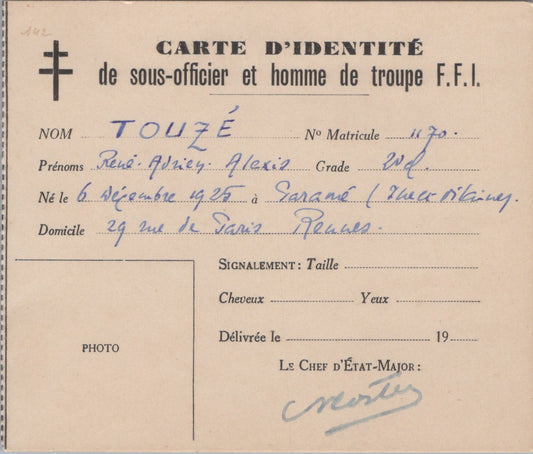 142
CARTE D'IDENTITÉ
de sous-officier et homme de troupe F.F.I.
NOM TOUZÉ No Matricule 1170.
Prénoms René. Adrien. Alexis Grade
Né le 6 Décembre 1925 à Paramé (Ille et Vilaine).
Domicile 29 rue de Paris Rennes.
SIGNALEMENT : Taille
Cheveux Yeux
Délivrée le 19
PHOTO
LE CHEF D'ÉTAT-MAJOR :